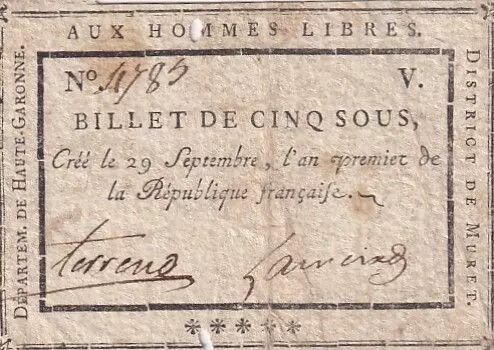 AUX HOMMES LIBRES.
DÉPARTEM. DE HAUTE-GARONNE.
DISTRICT DE MURET.
No. 4785 V.
BILLET DE CINQ SOUS,
Créé le 29 Septembre, l'an premier de
la République française.